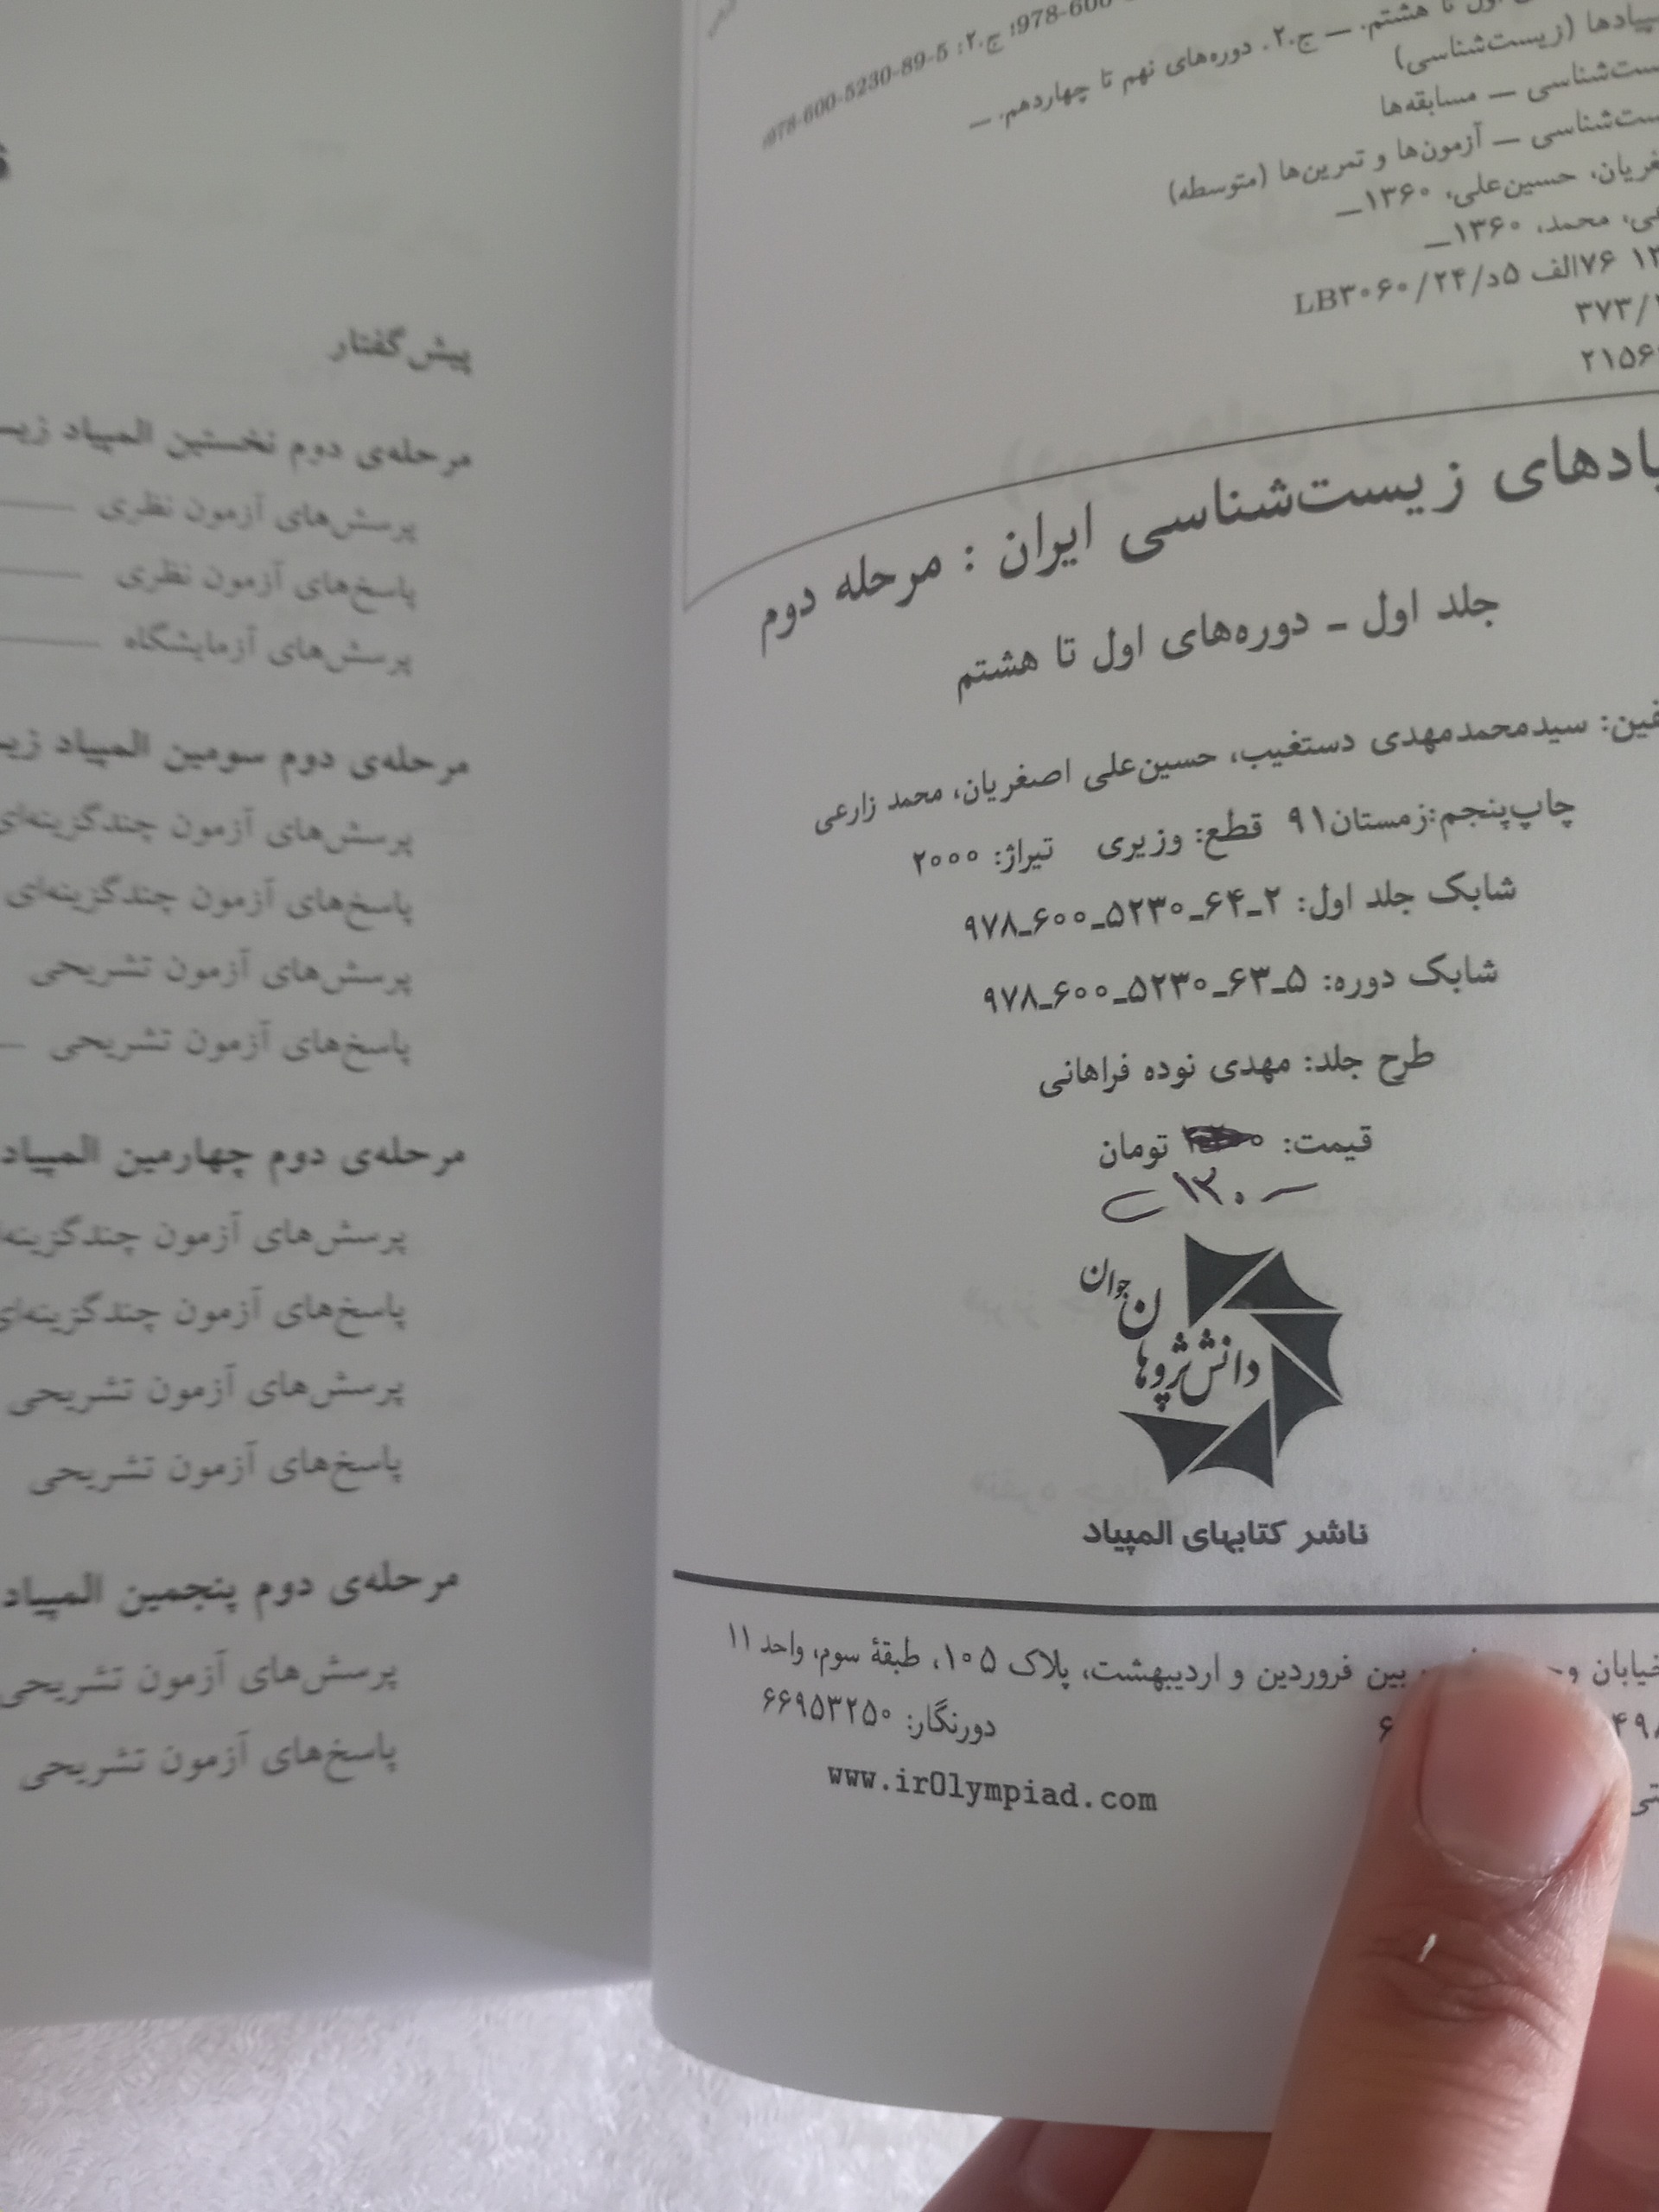 978-600-5230-89-5 :ج.۲
اول تا هشتم. — ج.۲. دوره‌های نهم تا چهاردهم. —
(زیست‌شناسی)
— مسابقه‌ها
— آزمون‌ها و تمرین‌ها (متوسطه)
حسین‌علی، ۱۳۶۰—
محمد، ۱۳۶۰—
LB۳۰۶۰/۲۴/د۵ الف۷۶
۳۷۳/
زیست‌شناسی ایران : مرحله دوم
جلد اول - دوره‌های اول تا هشتم
سیدمحمدمهدی دستغیب، حسین‌علی اصغریان، محمد زارعی
چاپ‌پنجم:زمستان۹۱ قطع: وزیری تیراژ: ۲۰۰۰
شابک جلد اول: ۲ـ۶۴ـ۵۲۳۰ـ۶۰۰ـ۹۷۸
شابک دوره: ۵ـ۶۳ـ۵۲۳۰ـ۶۰۰ـ۹۷۸
طرح جلد: مهدی نوده فراهانی
قیمت: تومان
دانش‌پژوهان جوان
ناشر کتابهای المپیاد
خیابان بین فروردین و اردیبهشت، پلاک ۱۰۵، طبقهٔ سوم، واحد ۱۱
دورنگار: ۶۶۹۵۳۲۵۰
www.irOlympiad.com
پیش‌گفتار
مرحله‌ی دوم نخستین المپیاد
پرسش‌های آزمون نظری
پاسخ‌های آزمون نظری
پرسش‌های آزمایشگاه
مرحله‌ی دوم سومین المپیاد
پرسش‌های آزمون چندگزینه‌ای
پاسخ‌های آزمون چندگزینه‌ای
پرسش‌های آزمون تشریحی
پاسخ‌های آزمون تشریحی
مرحله‌ی دوم چهارمین المپیاد
پرسش‌های آزمون چندگزینه‌ای
پاسخ‌های آزمون چندگزینه‌ای
پرسش‌های آزمون تشریحی
پاسخ‌های آزمون تشریحی
مرحله‌ی دوم پنجمین المپیاد
پرسش‌های آزمون تشریحی
پاسخ‌های آزمون تشریحی